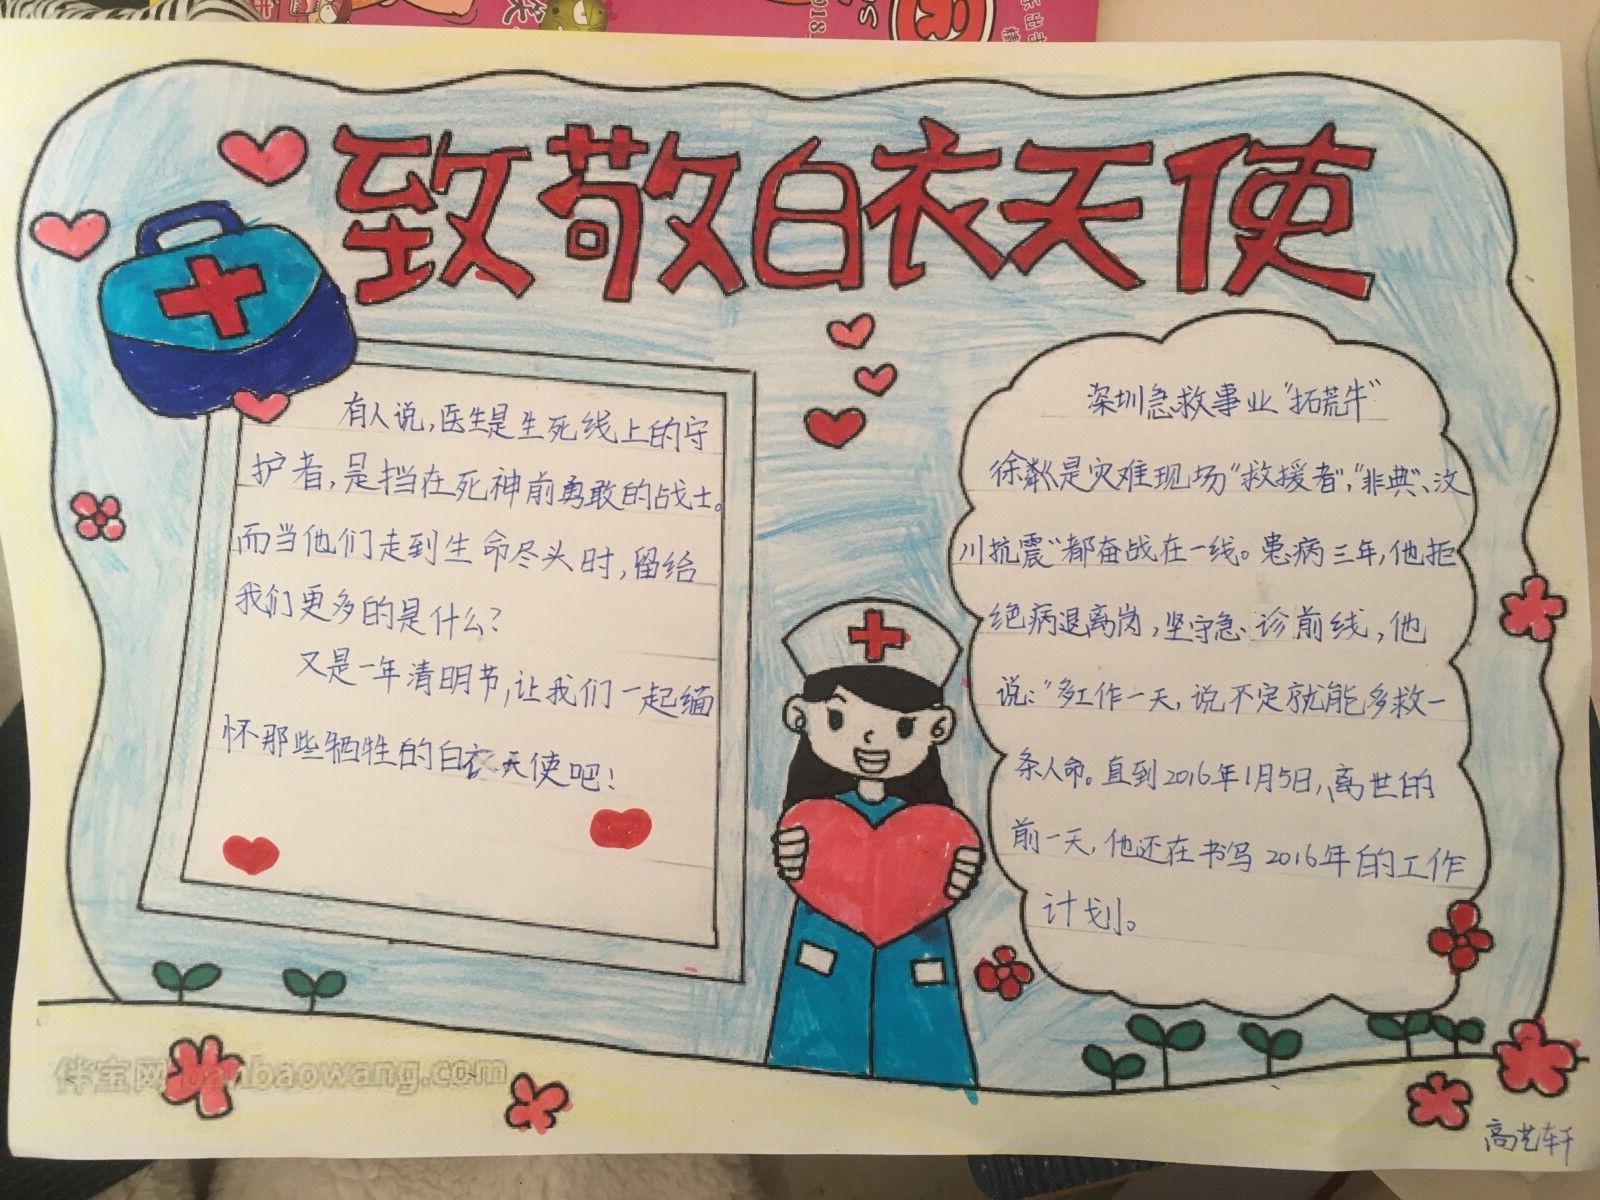 致敬白衣天使
有人说,医生是生死线上的守
护者,是挡在死神前勇敢的战士。
而当他们走到生命尽头时,留给
我们更多的是什么?
又是一年清明节,让我们一起缅
怀那些牺牲的白衣天使吧!
深圳急救事业"拓荒牛"
徐彪是灾难现场"救援者","非典"、汶
川抗震"都奋战在一线。患病三年,他拒
绝病退离岗,坚守急诊前线,他
说:"多工作一天,说不定就能多救一
条人命。直到2016年1月5日,离世的
前一天,他还在书写2016年的工作
计划。
伴宝网banbaowang.com
高艺轩